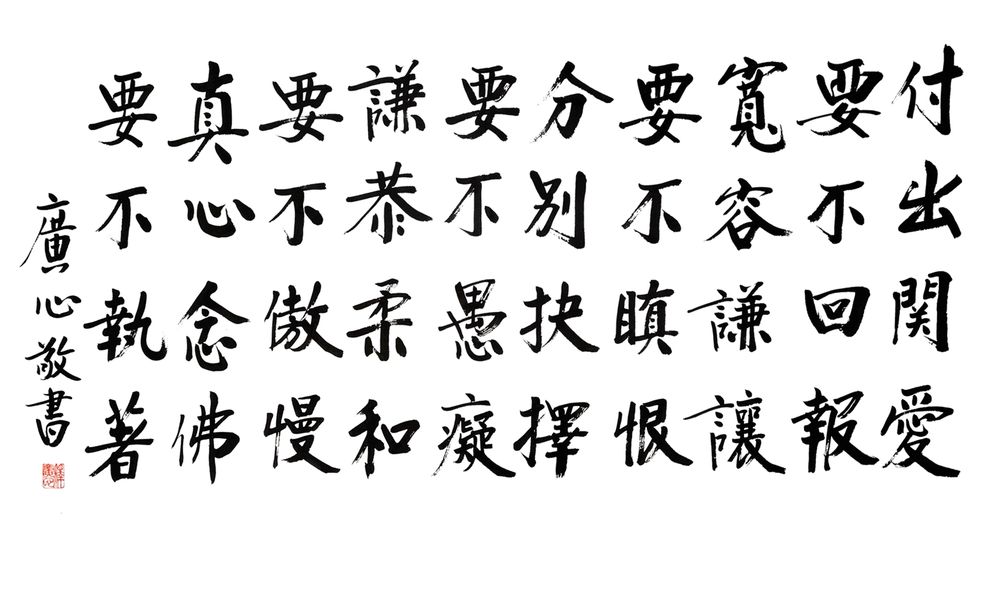 付出関愛
要不回報
寬容謙讓
要不瞋恨
分別抉擇
要不愚癡
謙恭柔和
要不傲慢
真心念佛
要不執著
廣心敬書